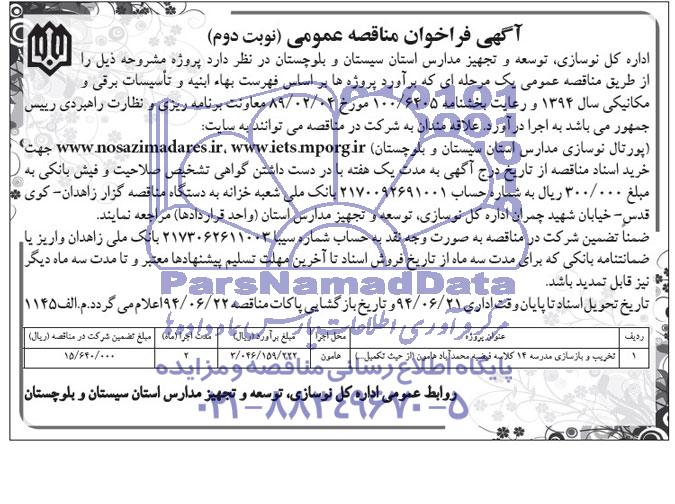 آگهی فراخوان مناقصه عمومی (نوبت دوم)
اداره کل نوسازی، توسعه و تجهیز مدارس استان سیستان و بلوچستان در نظر دارد پروژه مشروحه ذیل را
از طریق مناقصه عمومی یک مرحله ای که برآورد پروژه ها بر اساس فهرست بهاء ابنیه و تأسیسات برقی و
مکانیکی سال ۱۳۹۴ و رعایت بخشنامه ۱۰۰/۶۴۰۵ مورخ ۸۹/۰۲/۰۴ معاونت برنامه ریزی و نظارت راهبردی رییس
جمهور می باشد به اجرا درآورد. علاقه مندان به شرکت در مناقصه می توانند به سایت:
(پورتال نوسازی مدارس استان سیستان و بلوچستان) www.nosazimadares.ir، www.iets.mporg.ir جهت
خرید اسناد مناقصه از تاریخ درج آگهی به مدت یک هفته با در دست داشتن گواهی تشخیص صلاحیت و فیش بانکی به
مبلغ ۳۰۰/۰۰۰ ریال به شماره حساب ۲۱۷۰۰۹۲۶۹۱۰۰۱ بانک ملی شعبه خزانه به دستگاه مناقصه گزار زاهدان- کوی
قدس- خیابان شهید چمران اداره کل نوسازی، توسعه و تجهیز مدارس استان (واحد قراردادها) مراجعه نمایند.
ضمناً تضمین شرکت در مناقصه به صورت وجه نقد به حساب شماره سیبا ۲۱۷۳۰۶۲۶۱۱۰۰۳ بانک ملی زاهدان واریز یا
ضمانتنامه بانکی که برای مدت سه ماه از تاریخ فروش اسناد تا آخرین مهلت تسلیم پیشنهادها معتبر و تا مدت سه ماه دیگر
نیز قابل تمدید باشد.
تاریخ تحویل اسناد تا پایان وقت اداری ۹۴/۰۶/۲۱ و تاریخ بازگشایی پاکات مناقصه ۹۴/۰۶/۲۲ اعلام می گردد. م.الف ۱۱۴۵
ردیف عنوان پروژه محل اجرا مبلغ برآورد (ریال) مدت اجرا (ماه) مبلغ تضمین شرکت در مناقصه (ریال)
۱ تخریب و بازسازی مدرسه ۱۴ کلاسه نهضه محمدآباد هامون (از حیث تکمیل...) هامون ۳/۰۴۶/۱۵۹/۲۲۲ ۲ ۱۵/۶۴۰/۰۰۰
روابط عمومی اداره کل نوسازی، توسعه و تجهیز مدارس استان سیستان و بلوچستان
ParsNamadData
مرکز فرآوری اطلاعات پارس نماد داده ها
پایگاه اطلاع رسانی مناقصه و مزایده
۰۲۱-۸۸۳۴۹۶۷۰-۵